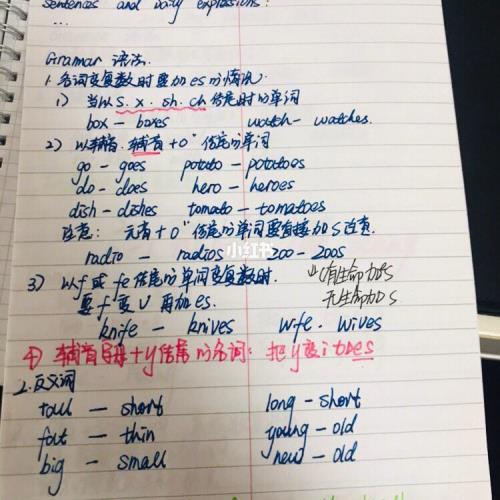 Sentences and Daily expressions:
...
Gramar 语法.
1. 名词变复数时要加es的情况:
1) 当以s. x. sh. ch 结尾时的单词
box - boxes watch - watches.
2) 以辅音. 辅音+O 结尾的单词
go - goes potato - potatoes
do - does hero - heroes
dish - dishes tomato - tomatoes
注意: 元音+O 结尾的单词要直接加S注意.
radio - radios zoo - zoos
小红书
有生命加es
无生命加s
3) 以f或fe结尾的单词变复数时.
要f变v再加es.
knife - knives wife. wives
④ 辅音字母+y结尾的名词: 把y变i加es
2. 反义词
taul - short long - short
fat - thin young - old
big - small new - old